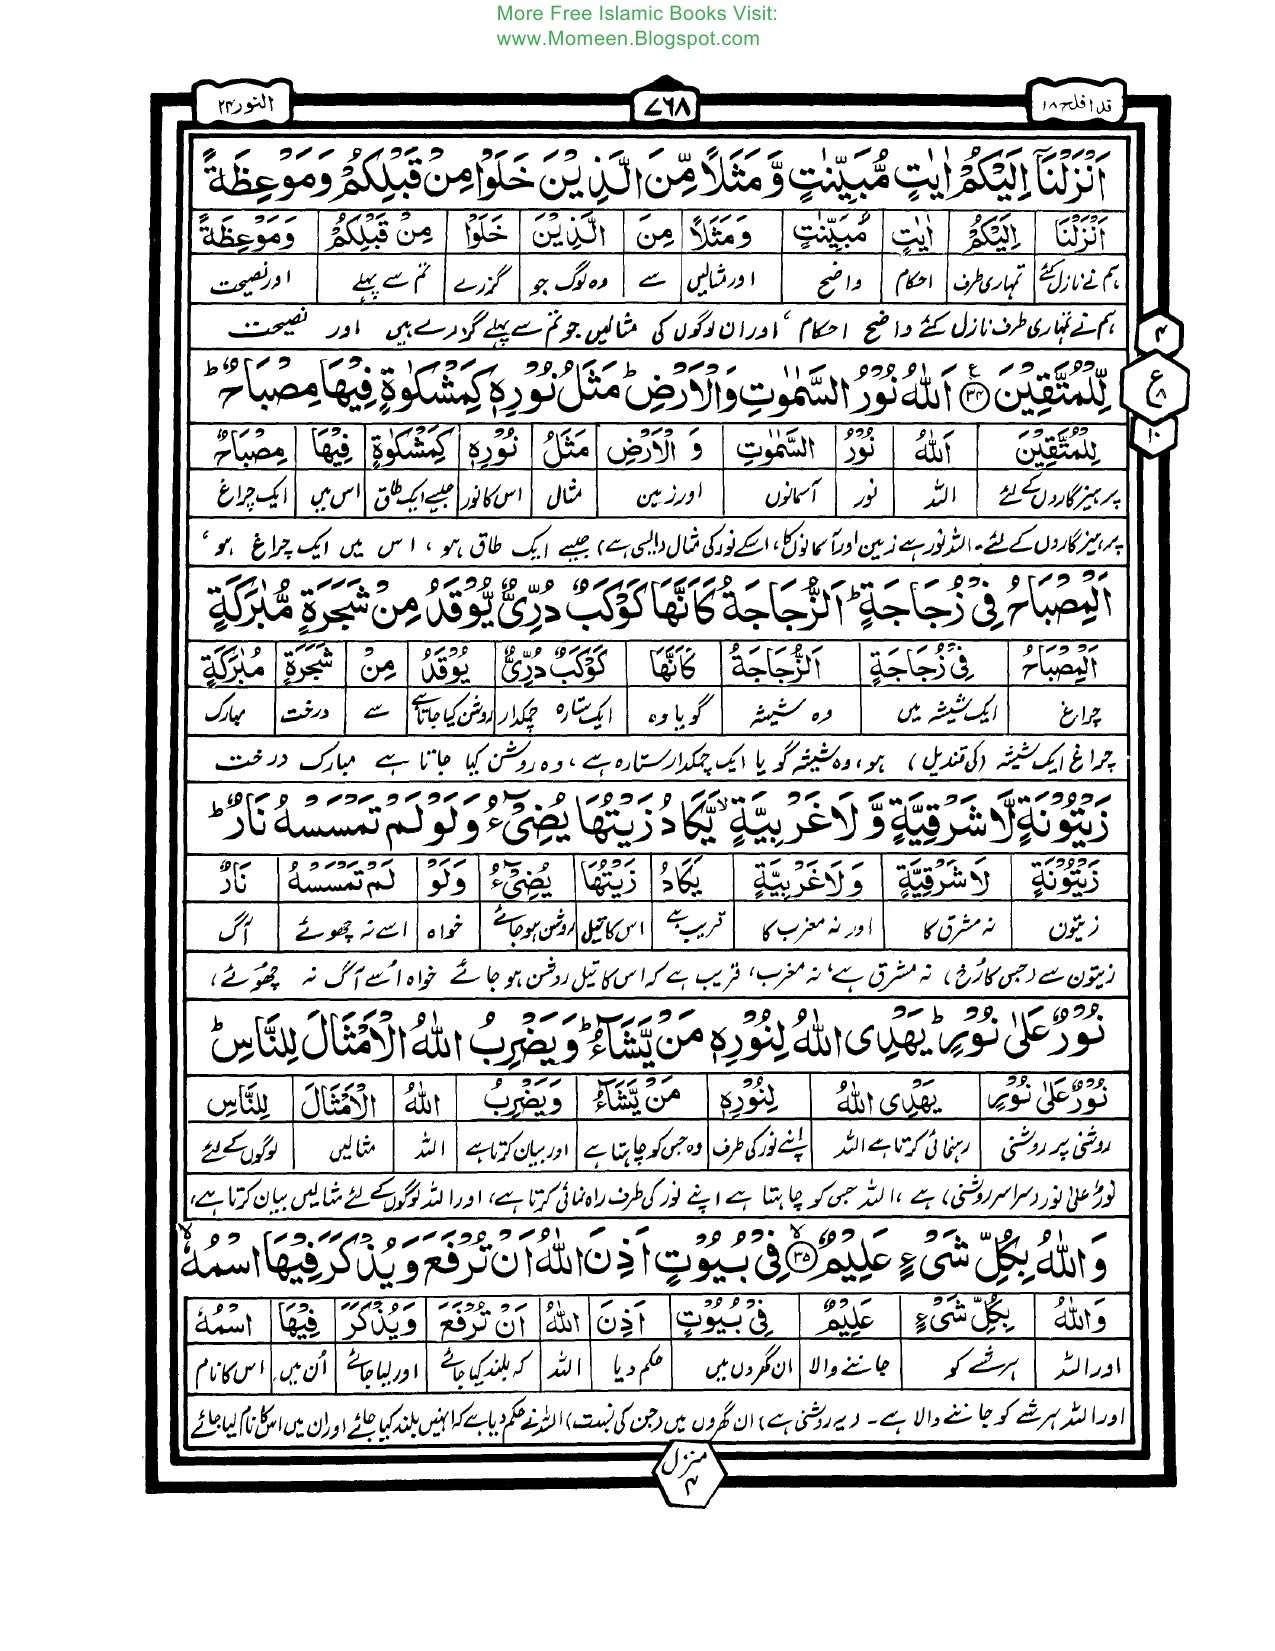 More Free Islamic Books Visit:
www.Momeen.Blogspot.com
قد افلح ۱۸
۷۶۸
النور ۲۴
اَنْزَلْنَاۤ اِلَيْكُمْ اٰيٰتٍ مُّبَيِّنٰتٍ وَّ مَثَلًا مِّنَ الَّذِيْنَ خَلَوْا مِنْ قَبْلِكُمْ وَمَوْعِظَةً
اَنْزَلْنَا اِلَيْكُمْ اٰيٰتٍ مُّبَيِّنٰتٍ وَمَثَلًا مِنَ الَّذِيْنَ خَلَوْا مِنْ قَبْلِكُمْ وَمَوْعِظَةً
ہم نے نازل کئے تمہاری طرف احکام واضح اور مثالیں سے وہ لوگ جو گزرے تم سے پہلے اور نصیحت
ہم نے تمہاری طرف نازل کئے واضح احکام ، اور ان لوگوں کی مثالیں جو تم سے پہلے گذرے ہیں اور نصیحت
۴
ع
۸
۱۰
لِّلْمُتَّقِيْنَ ۳۴ ع اَللّٰهُ نُوْرُ السَّمٰوٰتِ وَالْاَرْضِ ط مَثَلُ نُوْرِهٖ كَمِشْكٰوةٍ فِيْهَا مِصْبَاحٌ ط
لِلْمُتَّقِيْنَ اَللّٰهُ نُوْرُ السَّمٰوٰتِ وَ الْاَرْضِ مَثَلُ نُوْرِهٖ كَمِشْكٰوةٍ فِيْهَا مِصْبَاحٌ
پرہیزگاروں کے لئے اللہ نور آسمانوں اور زمین مثال اس کا نور جیسے ایک طاق اس میں ایک چراغ
پرہیزگاروں کے لئے۔ اللہ نور ہے زمین اور آسمانوں کا، اسکے نور کی مثال (ایسی ہے) جیسے ایک طاق ہو ، اس میں ایک چراغ ہو ،
اَلْمِصْبَاحُ فِيْ زُجَاجَةٍ ط اَلزُّجَاجَةُ كَاَنَّهَا كَوْكَبٌ دُرِّيٌّ يُّوْقَدُ مِنْ شَجَرَةٍ مُّبٰرَكَةٍ
اَلْمِصْبَاحُ فِيْ زُجَاجَةٍ اَلزُّجَاجَةُ كَاَنَّهَا كَوْكَبٌ دُرِّيٌّ يُوْقَدُ مِنْ شَجَرَةٍ مُبٰرَكَةٍ
چراغ ایک شیشہ میں وہ شیشہ گویا وہ ایک ستارہ چمکدار روشن کیا جاتا ہے سے درخت مبارک
چراغ ایک شیشہ (کی قندیل) ہو، وہ شیشہ گویا ایک چمکدار ستارہ ہے ، وہ روشن کیا جاتا ہے مبارک درخت
زَيْتُوْنَةٍ لَّا شَرْقِيَّةٍ وَّ لَا غَرْبِيَّةٍ ۙ يَّكَادُ زَيْتُهَا يُضِيْٓءُ وَلَوْ لَمْ تَمْسَسْهُ نَارٌ ط
زَيْتُوْنَةٍ لَا شَرْقِيَّةٍ وَلَا غَرْبِيَّةٍ يَكَادُ زَيْتُهَا يُضِيْٓءُ وَلَوْ لَمْ تَمْسَسْهُ نَارٌ
زیتون نہ مشرق کا اور نہ مغرب کا قریب ہے اس کا تیل روشن ہو جائے خواہ اسے نہ چھوئے آگ
زیتون سے (جس کا رُخ) نہ مشرق ہے، نہ مغرب، قریب ہے کہ اس کا تیل روشن ہو جائے خواہ اُسے آگ نہ چھوئے،
نُوْرٌ عَلٰى نُوْرٍ ط يَهْدِى اللّٰهُ لِنُوْرِهٖ مَنْ يَّشَآءُ ط وَيَضْرِبُ اللّٰهُ الْاَمْثَالَ لِلنَّاسِ ط
نُوْرٌ عَلٰى نُوْرٍ يَهْدِى اللّٰهُ لِنُوْرِهٖ مَنْ يَّشَآءُ وَيَضْرِبُ اللّٰهُ الْاَمْثَالَ لِلنَّاسِ
روشنی پر روشنی رہنمائی کرتا ہے اللہ اپنے نور کی طرف وہ جس کو چاہتا ہے اور بیان کرتا ہے اللہ مثالیں لوگوں کے لئے
نورٌ علیٰ نور (سراسر روشنی) ہے ، اللہ جس کو چاہتا ہے اپنے نور کی طرف راہ نمائی کرتا ہے، اور اللہ لوگوں کے لئے مثالیں بیان کرتا ہے،
وَاللّٰهُ بِكُلِّ شَيْءٍ عَلِيْمٌ ۳۵ ۙ فِيْ بُيُوْتٍ اَذِنَ اللّٰهُ اَنْ تُرْفَعَ وَيُذْكَرَ فِيْهَا اسْمُهٗ ۙ
وَاللّٰهُ بِكُلِّ شَيْءٍ عَلِيْمٌ فِيْ بُيُوْتٍ اَذِنَ اللّٰهُ اَنْ تُرْفَعَ وَيُذْكَرَ فِيْهَا اسْمُهٗ
اور اللہ ہر شے کو جاننے والا ان گھروں میں حکم دیا اللہ کہ بلند کیا جائے اور لیا جائے اُن میں اس کا نام
اور اللہ ہر شے کو جاننے والا ہے۔ (یہ روشنی ہے) ان گھروں میں (جن کی نسبت) اللہ نے حکم دیا ہے کہ انہیں بلند کیا جائے اور ان میں اس کا نام لیا جائے
منزل
۴